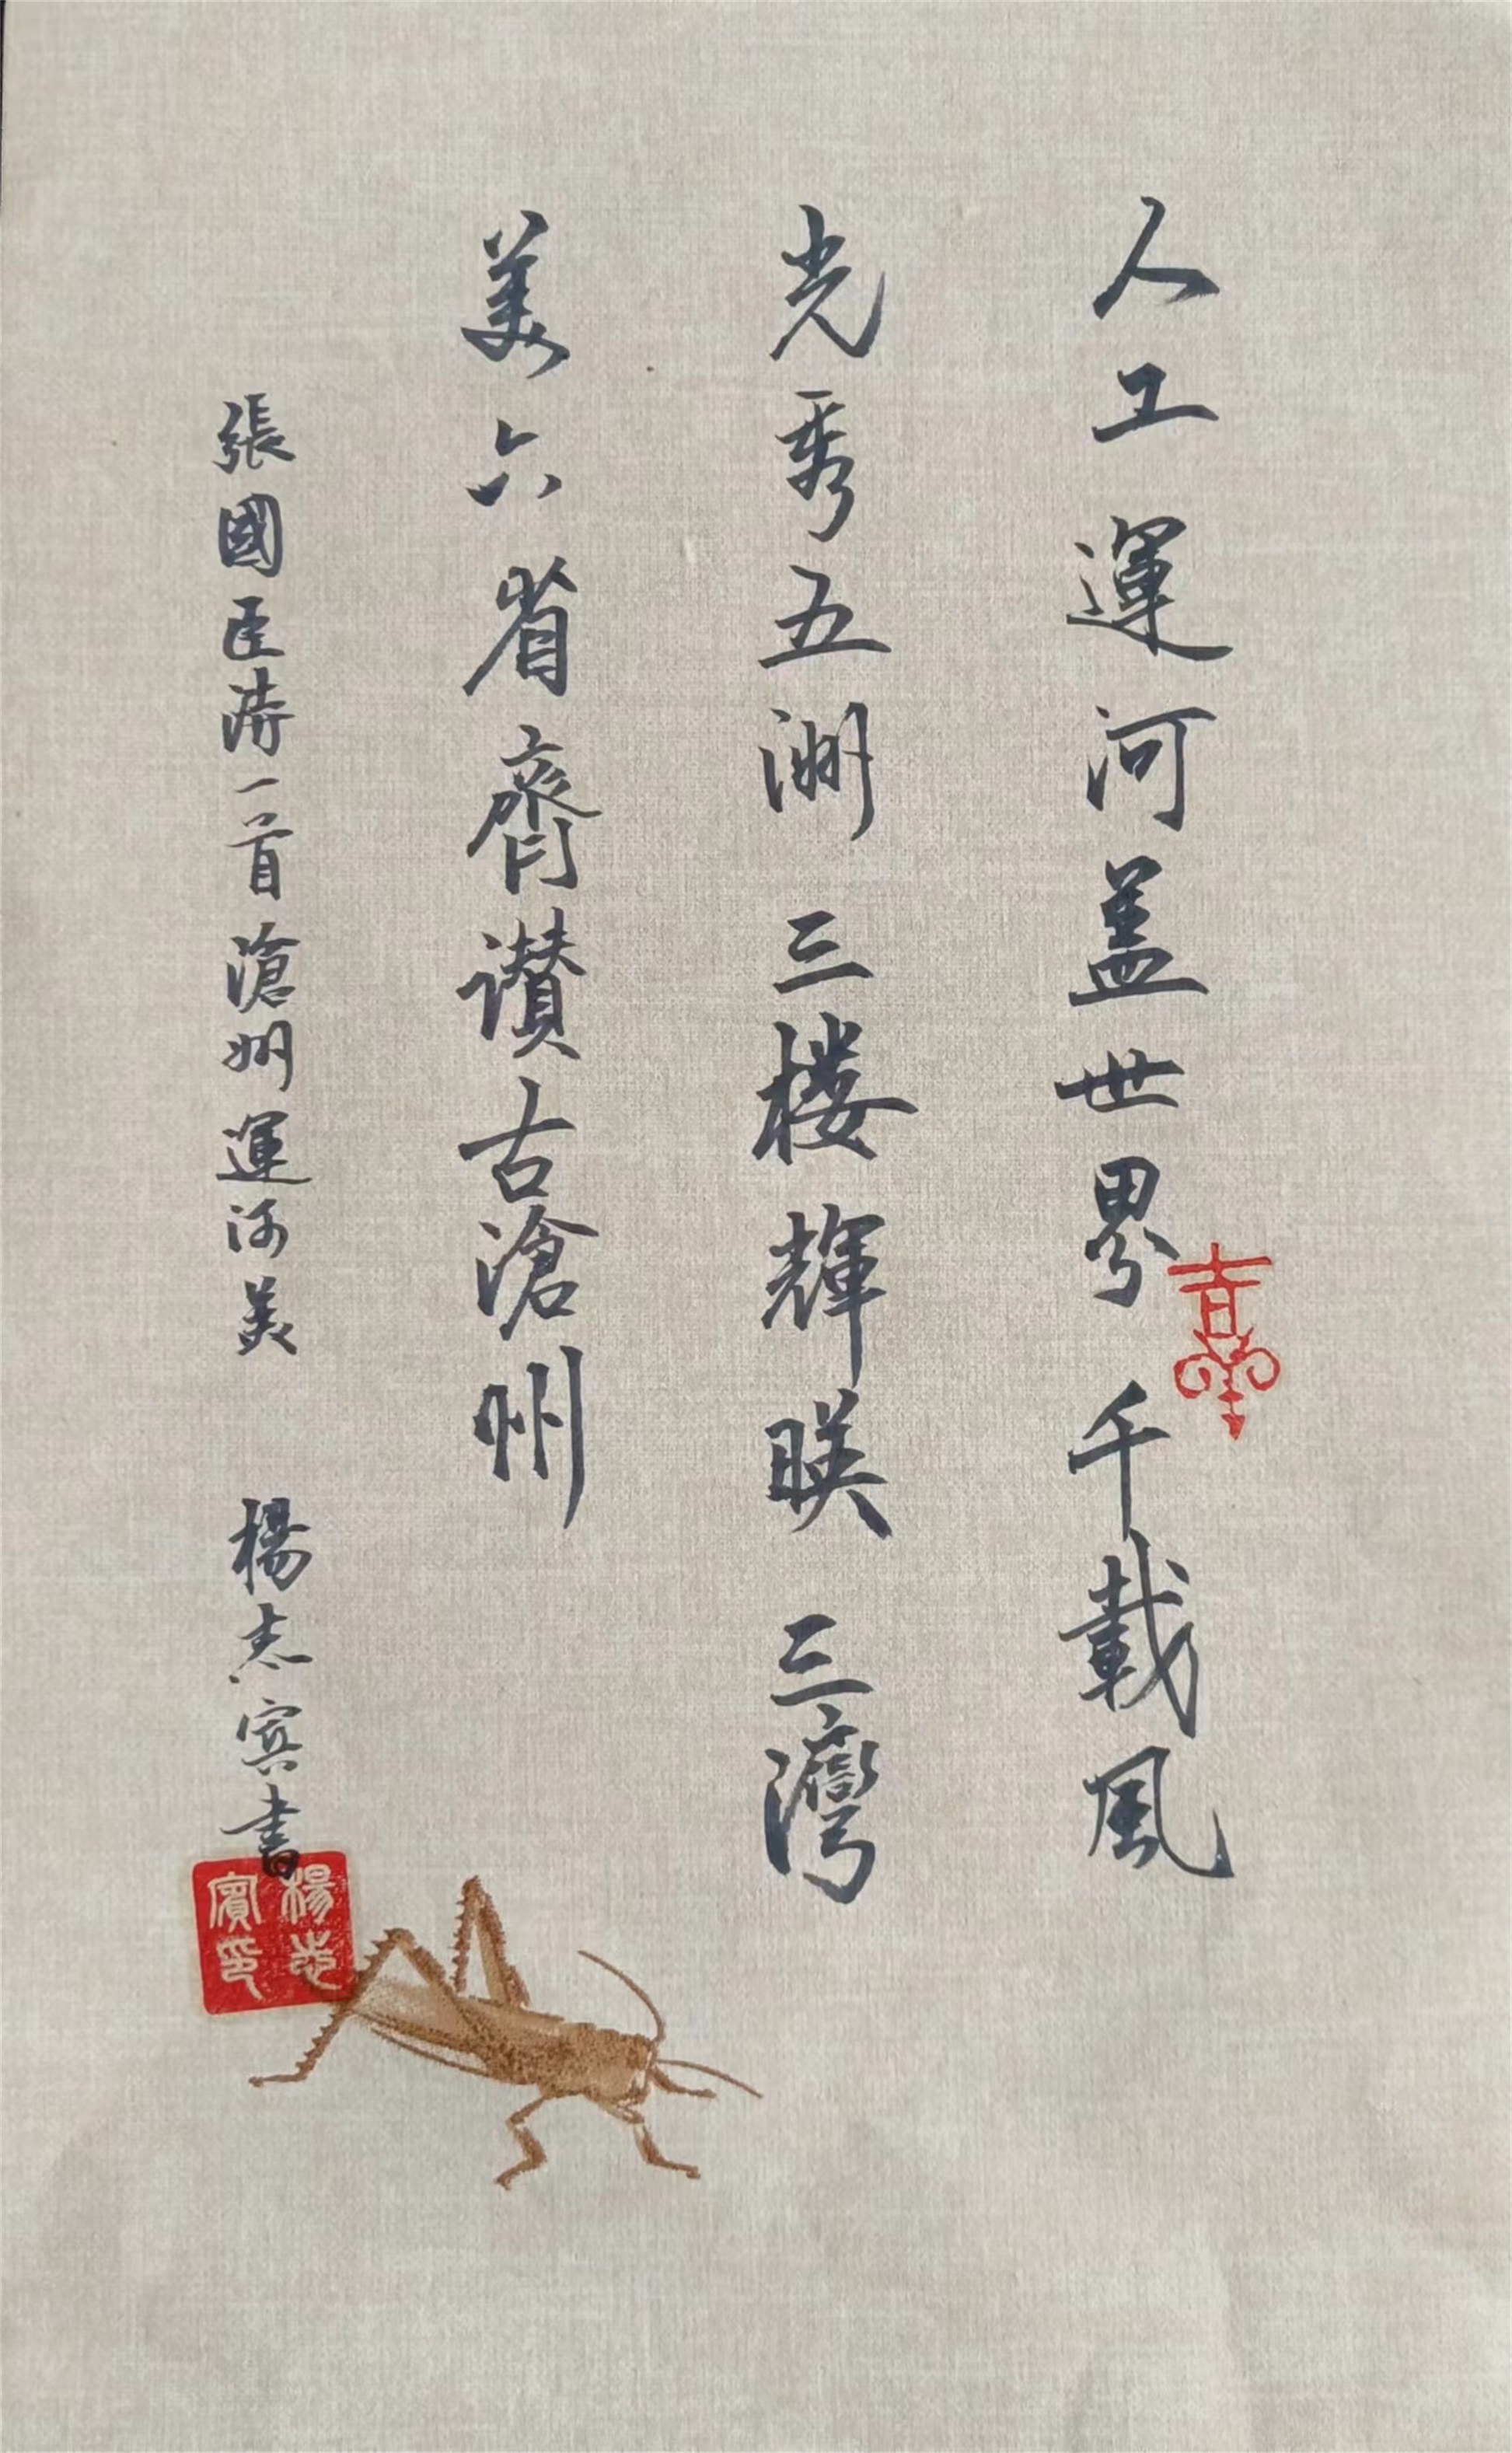 人工運河盖世界千載風
光秀五洲三楼輝暎三灣
美六省齊讃古滄州
張國臣涛一首滄州運河美 楊志宾書
楊志賓印